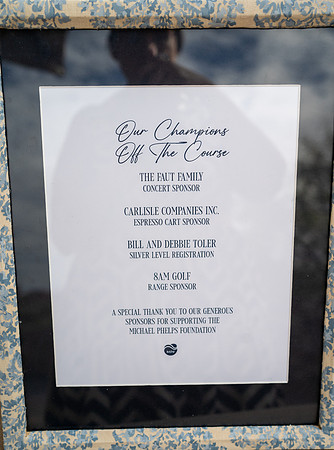 Our Champions
Off The Course
THE FAUT FAMILY
CONCERT SPONSOR
CARLISLE COMPANIES INC.
ESPRESSO CART SPONSOR
BILL AND DEBBIE TOLER
SILVER LEVEL REGISTRATION
8AM GOLF
RANGE SPONSOR
A SPECIAL THANK YOU TO OUR GENEROUS
SPONSORS FOR SUPPORTING THE
MICHAEL PHELPS FOUNDATION